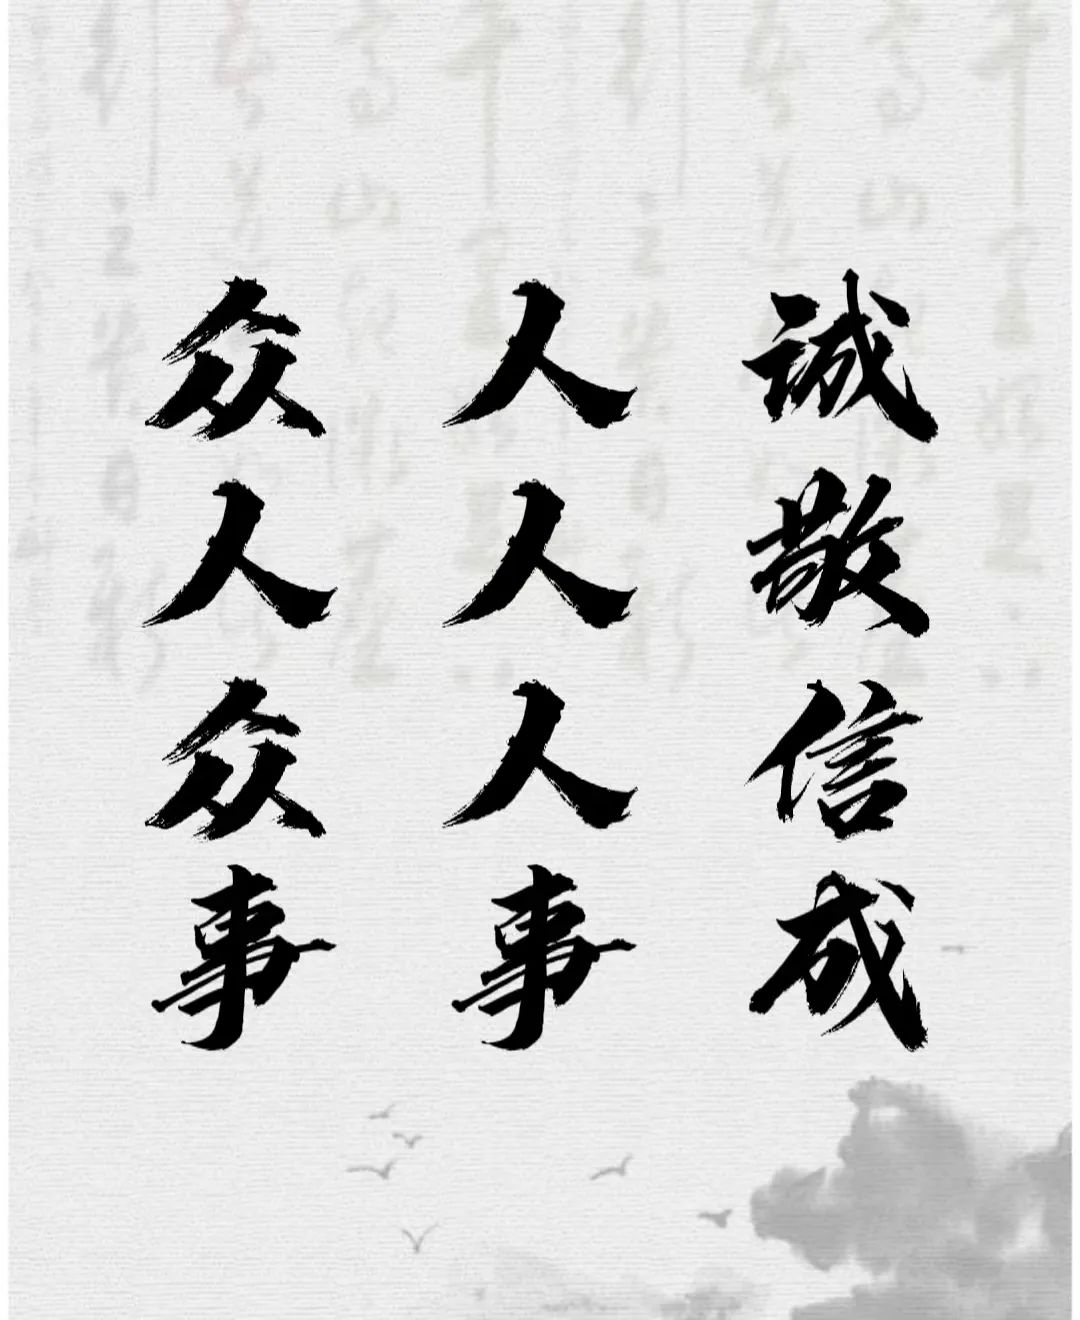 诚敬信成
人人人事
众人众事